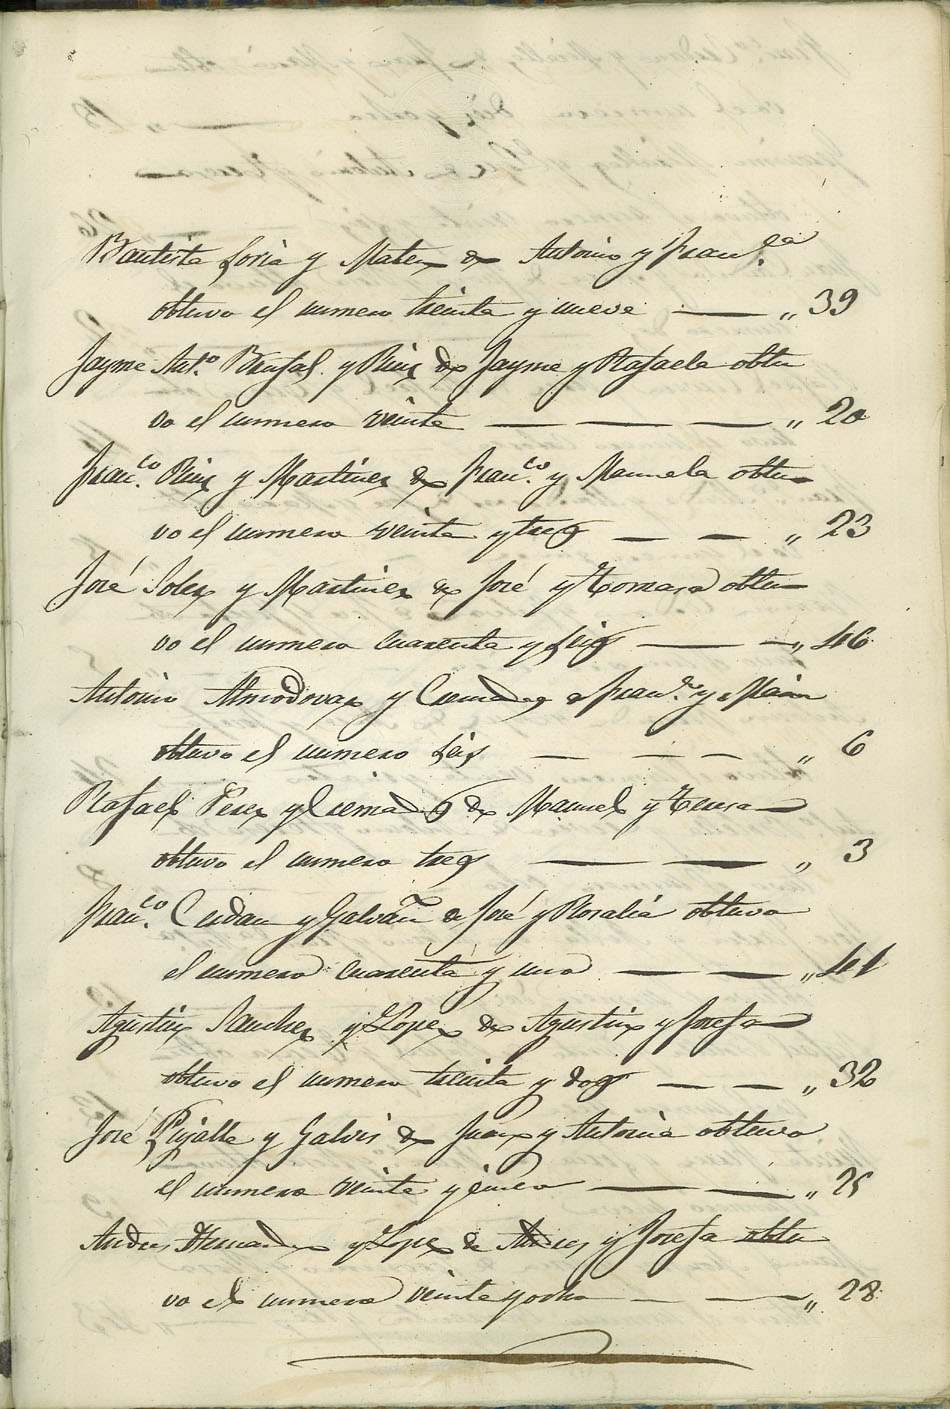 Bautista Soria y Mateo de Antonio y Fran.ca
obtuvo el numero treinta y nueve — „ 39
Jayme Ant.o y Ruiz de Jayme y Rafaela obtu
vo el numero veinte — — — „ 20
Fran.co Ruiz y Martinez de Fran.co y Manuela obtu-
vo el numero veinte y tres — — „ 23
José Soler y Martinez de José y Tomasa obtu-
vo el numero cuarenta y seis — — „ 46
Antonio Almodovar y de Fran.co y Maria
obtuvo el numero seis — — — „ 6
Rafael Perez y de Manuel y Teresa
obtuvo el numero tres — — „ 3
Fran.co Cerdan y Galvañ de José y Rosalia obtuvo
el numero cuarenta y uno — — „ 41
Agustin Sanchez y Lopez de Agustin y Josefa
obtuvo el numero treinta y dos — — „ 32
José Pujalte y Galvis de Juan y Antonia obtuvo
el numero veinte y cinco — — „ 25
Andres Hernandez y Lopez de Andres y Josefa obtu
vo el numero veinte y ocho — — „ 28